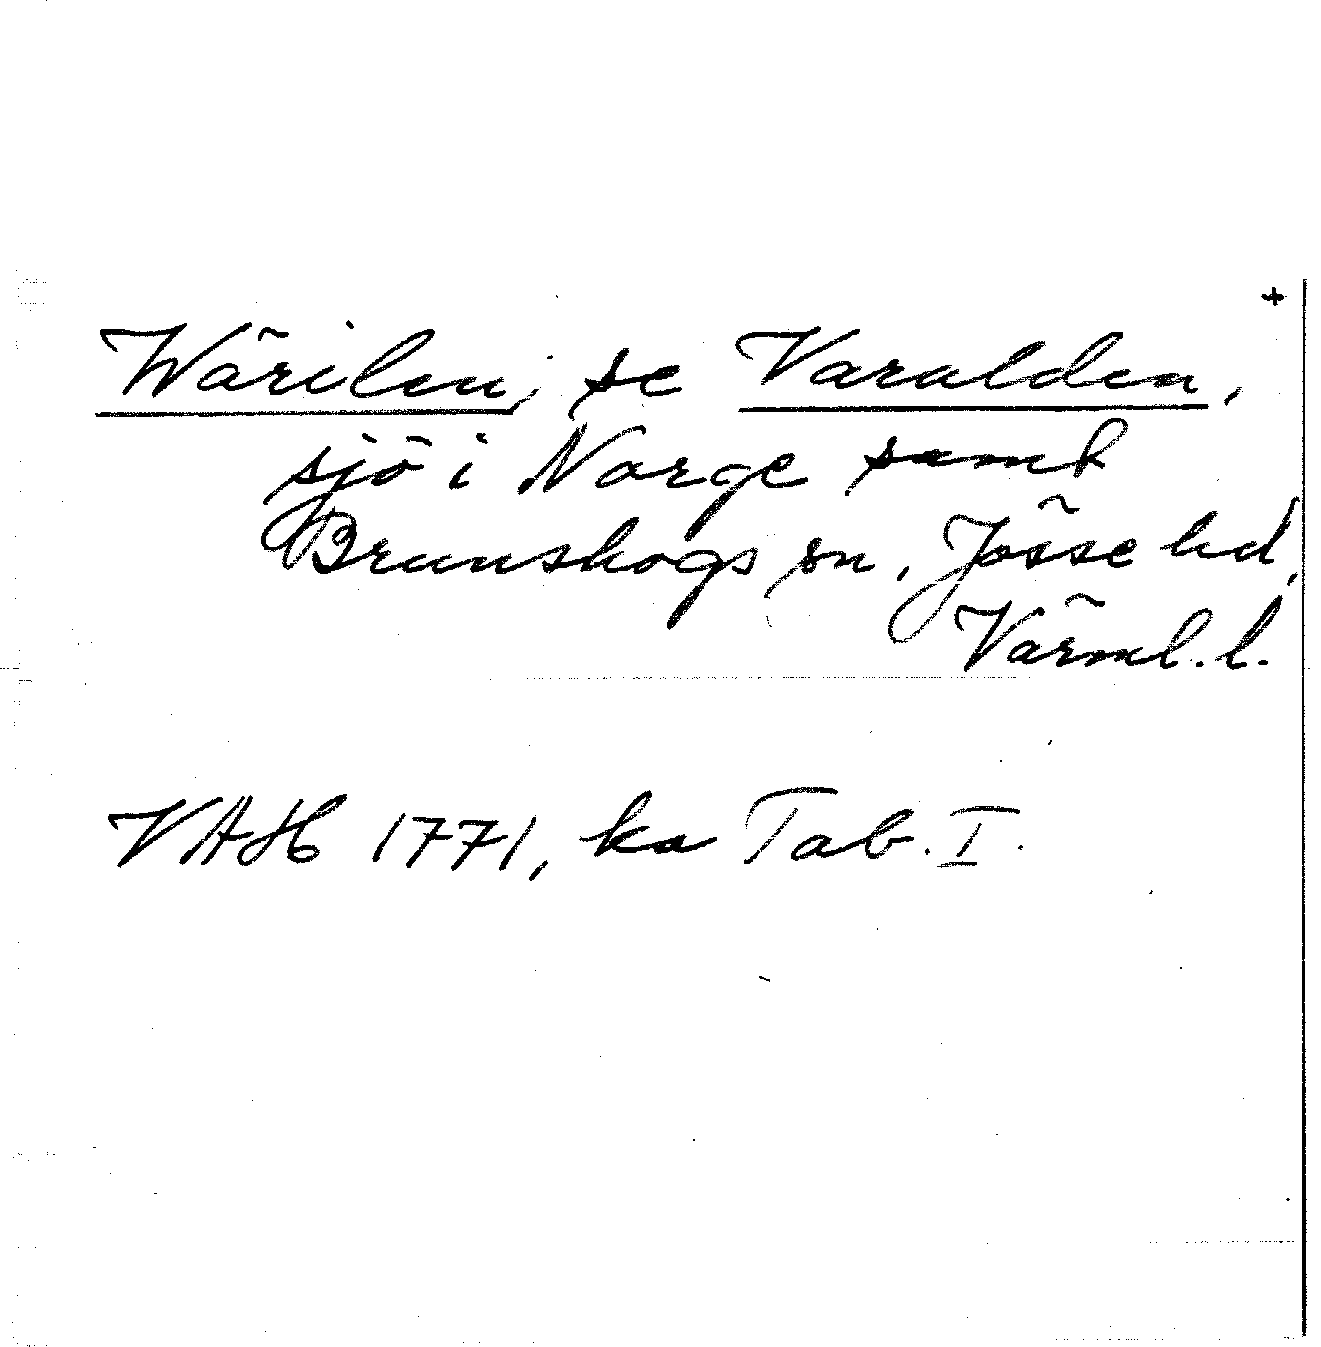 +
Wärilen, se Varalden,
sjö i Norge samt
Brunskogs sn, Jösse hd,
Värml. l.
VAH 1771, ka Tab. I.